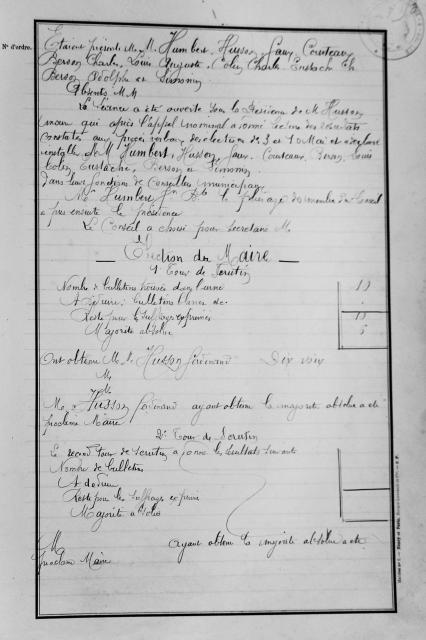 N° d'ordre.
Etaient présents M. M. Humbert, Husson, Faux, Couteaux,
Berson Charles, Louis Auguste, Colin Charles, Eustache Ch.
Berson Adolphe et Simonin
Absents M. M.
La séance a été ouverte sous la Présidence de M. Husson
maire qui après l'appel nominal a donné lecture des résultats
constatés aux procès verbaux des élections des 3 et 10 Mai et a déclaré
installés M. M. Humbert, Husson, Faux, Couteaux, Berson, Louis
Colin, Eustache, Berson et Simonin
dans leurs fonctions de conseillers municipaux
M. Humbert le plus âgé des membres du Conseil
a pris ensuite la présidence
Le Conseil a choisi pour Secrétaire M.
Election du Maire
1er Tour de Scrutin
Nombre de bulletins trouvés dans l'urne 10
A déduire: bulletins blancs etc.
Reste pour les suffrages exprimés 10
Majorité absolue 6
Ont obtenu M. M. Husson Ferdinand Dix voix
M.
M.
M. Husson Ferdinand ayant obtenu la majorité absolue a été
proclamé Maire
2e Tour de Scrutin
Le second tour de scrutin a donné les résultats suivants
Nombre de bulletins
A déduire
Reste pour les suffrages exprimés
Majorité absolue
M. ayant obtenu la majorité absolue a été
proclamé Maire